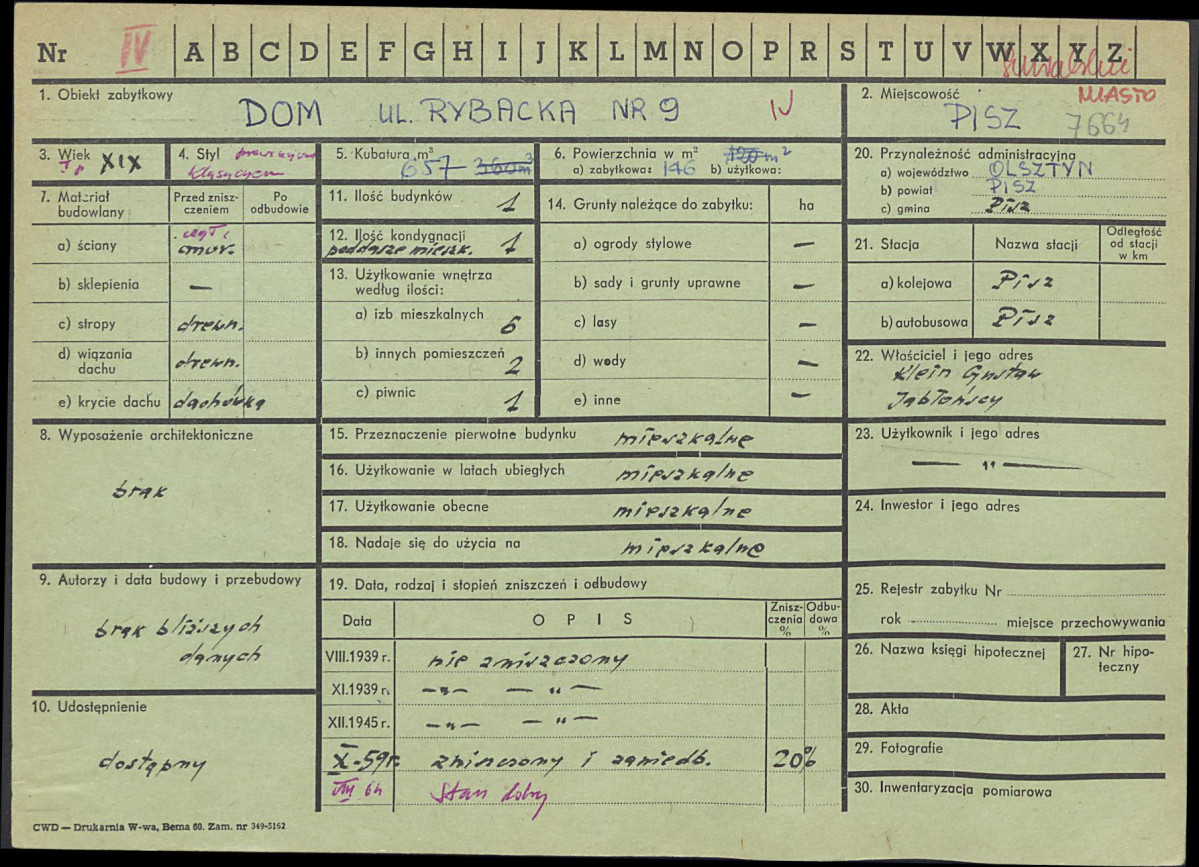 Nr IV A B C D E F G H I J K L M N O P R S T U V W X Y Z
suwalskie
1. Obiekt zabytkowy
DOM UL. RYBACKA NR 9 IV
2. Miejscowość MIASTO
PISZ 7664
3. Wiek XIX
4. Styl
5. Kubatura m³
657 360m³
6. Powierzchnia w m²
a) zabytkowa: 146 b) użytkowa: 120 m²
7. Materiał budowlany
Przed zniszczeniem
Po odbudowie
a) ściany cegł.
b) sklepienia —
c) stropy drewn.
d) wiązania dachu drewn.
e) krycie dachu dachówka
8. Wyposażenie architektoniczne
brak
9. Autorzy i data budowy i przebudowy
brak bliższych
danych
10. Udostępnienie
dostępny
11. Ilość budynków 1
12. Ilość kondygnacji 1
poddasze mieszk.
13. Użytkowanie wnętrza
według ilości:
a) izb mieszkalnych 6
b) innych pomieszczeń 2
c) piwnic 1
14. Grunty należące do zabytku: ha
a) ogrody stylowe —
b) sady i grunty uprawne —
c) lasy —
d) wody —
e) inne —
15. Przeznaczenie pierwotne budynku mieszkalne
16. Użytkowanie w latach ubiegłych mieszkalne
17. Użytkowanie obecne mieszkalne
18. Nadaje się do użycia na mieszkalne
19. Data, rodzaj i stopień zniszczeń i odbudowy
Data OPIS Zniszczenia % Odbudowa %
VIII.1939 r. nie zniszczony
XI.1939 r. —„— —„—
XII.1945 r. —„— —„—
X-59r. zniszczony i zaniedb. 20%
VIII 64 Stan dobry
20. Przynależność administracyjna
a) województwo OLSZTYN
b) powiat PISZ
c) gmina Pisz
21. Stacja Nazwa stacji Odległość od stacji w km
a) kolejowa Pisz
b) autobusowa Pisz
22. Właściciel i jego adres
Klein Gustaw
Jabłońscy
23. Użytkownik i jego adres
— „ —
24. Inwestor i jego adres
25. Rejestr zabytku Nr
rok miejsce przechowywania
26. Nazwa księgi hipotecznej
27. Nr hipoteczny
28. Akta
29. Fotografie
30. Inwentaryzacja pomiarowa
CWD — Drukarnia W-wa, Bema 60. Zam. nr 349-5162